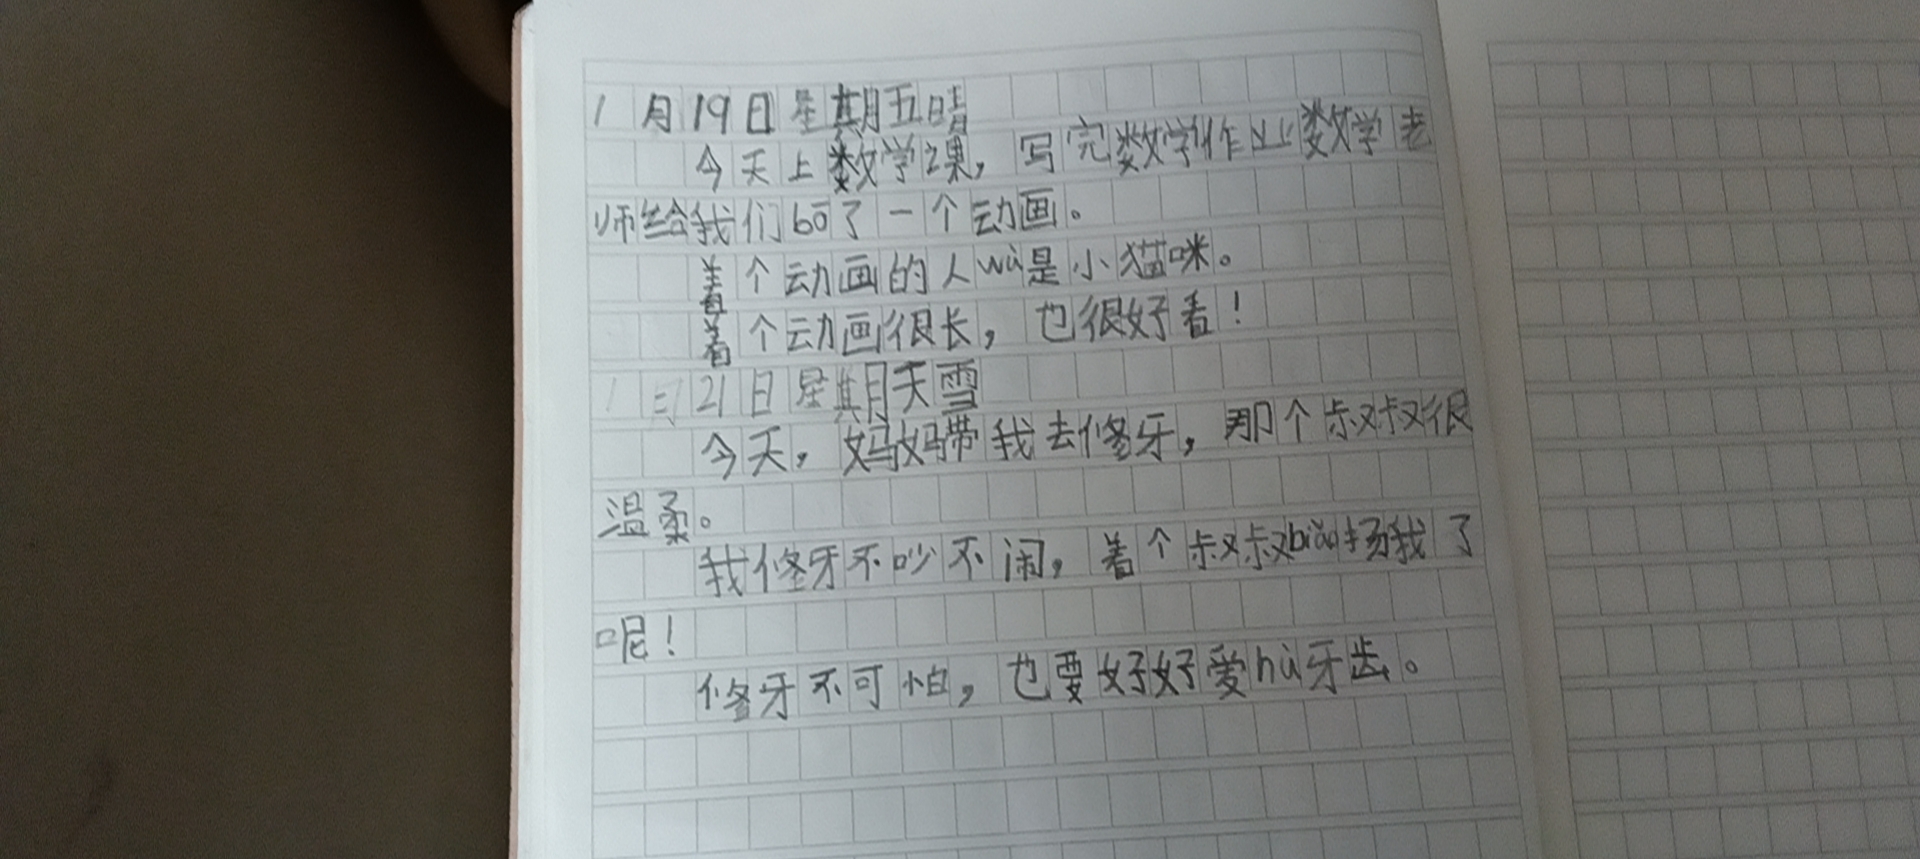 1月19日星期五晴
今天上数学课，写完数学作业数学老
师给我们bō了一个动画。
着个动画的人wù是小猫咪。
着个动画很长，也很好看！
1月21日星期天雪
今天，妈妈带我去修牙，那个叔叔很
温柔。
我修牙不吵不闹，着个叔叔biǎo扬我了
呢！
修牙不可怕，也要好好爱hù牙齿。